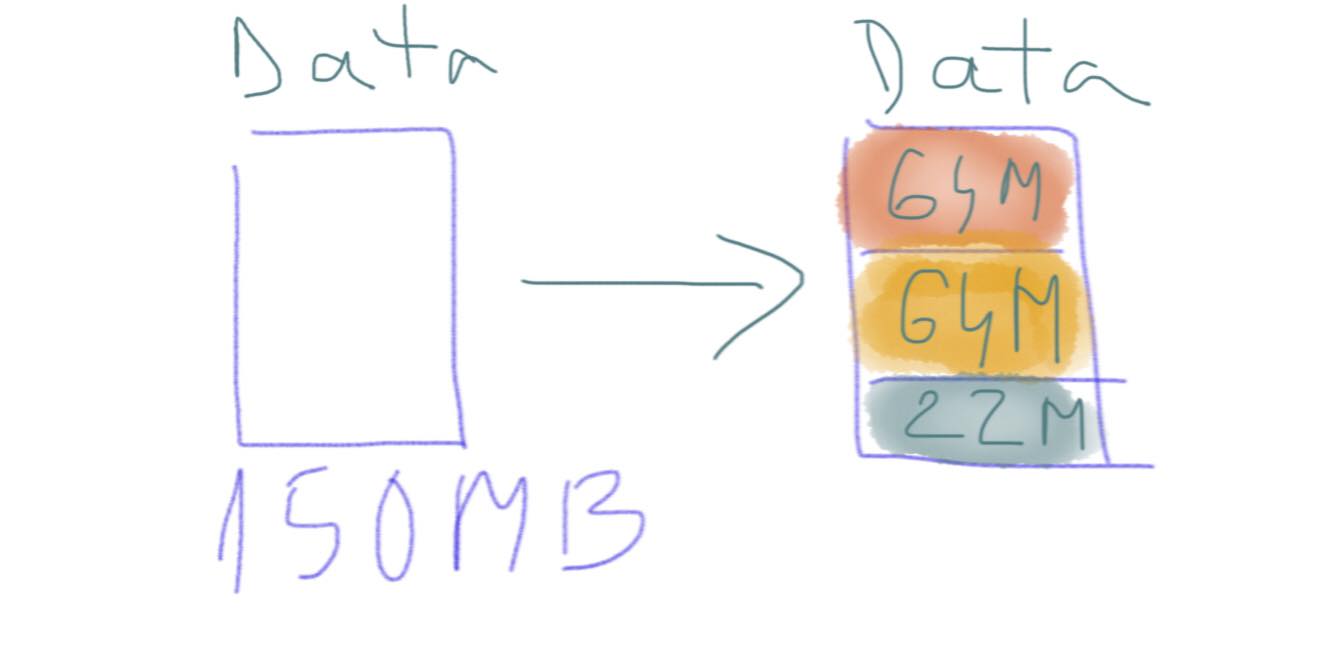 Data
150MB
Data
64M
64M
22M